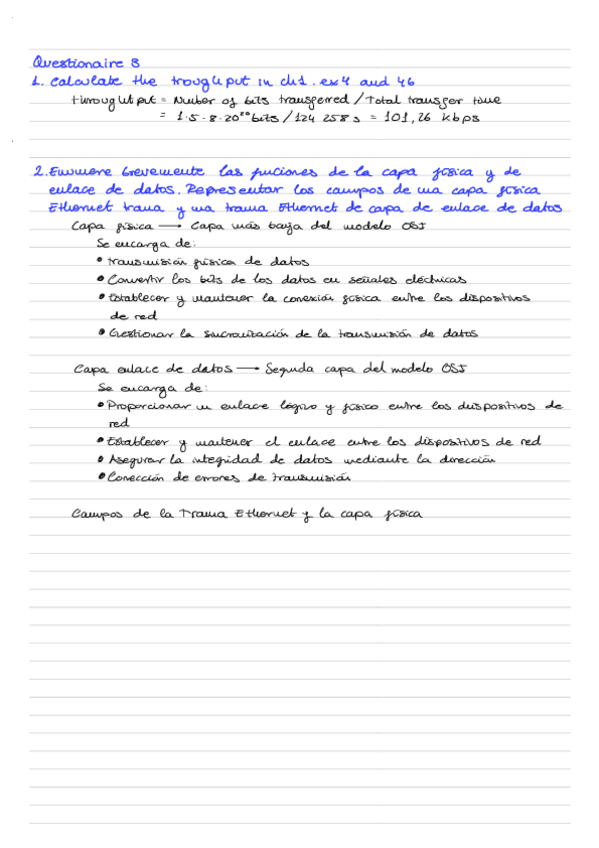 Questionaire 3
1. Calculate the troughput in ch1. ex4 and 46
throughtput = Number of bits transferred / Total transfer time
= 1.5 · 8 · 20²⁰ bits / 124 258 s = 101,26 kbps
2. Enumere brevemente las funciones de la capa física y de
enlace de datos. Representar los campos de una capa física
Ethernet trama y una trama Ethernet de capa de enlace de datos
Capa física → Capa más baja del modelo OSI
Se encarga de:
• transmisión física de datos
• Convertir los bits de los datos en señales eléctricas
• Establecer y mantener la conexión física entre los dispositivos
de red
• Gestionar la sincronización de la transmisión de datos
Capa enlace de datos → Segunda capa del modelo OSI
Se encarga de:
• Proporcionar un enlace lógico y físico entre los dispositivos de
red
• Establecer y mantener el enlace entre los dispositivos de red
• Asegurar la integridad de datos mediante la dirección
• Corrección de errores de transmisión
Campos de la Trama Ethernet y la capa física